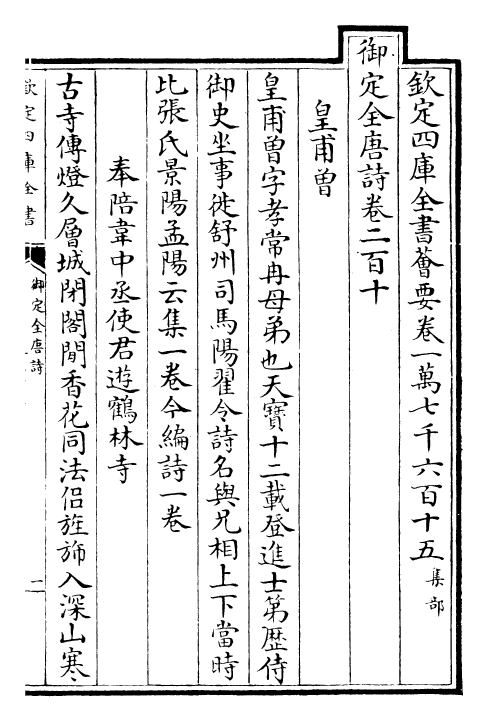 欽定四庫全書薈要卷一萬七千六百十五 集部
御定全唐詩卷二百十
皇甫曾
皇甫曾字孝常冉母弟也天寶十二載登進士第歴侍
御史坐事徙舒州司馬陽翟令詩名與兄相上下當時
比張氏景陽孟陽云集一卷今編詩一卷
奉陪韋中丞使君遊鶴林寺
古寺傳燈久層城閉閣閒香花同法侣旌旆入深山寒
欽定四庫全書
御定全唐詩